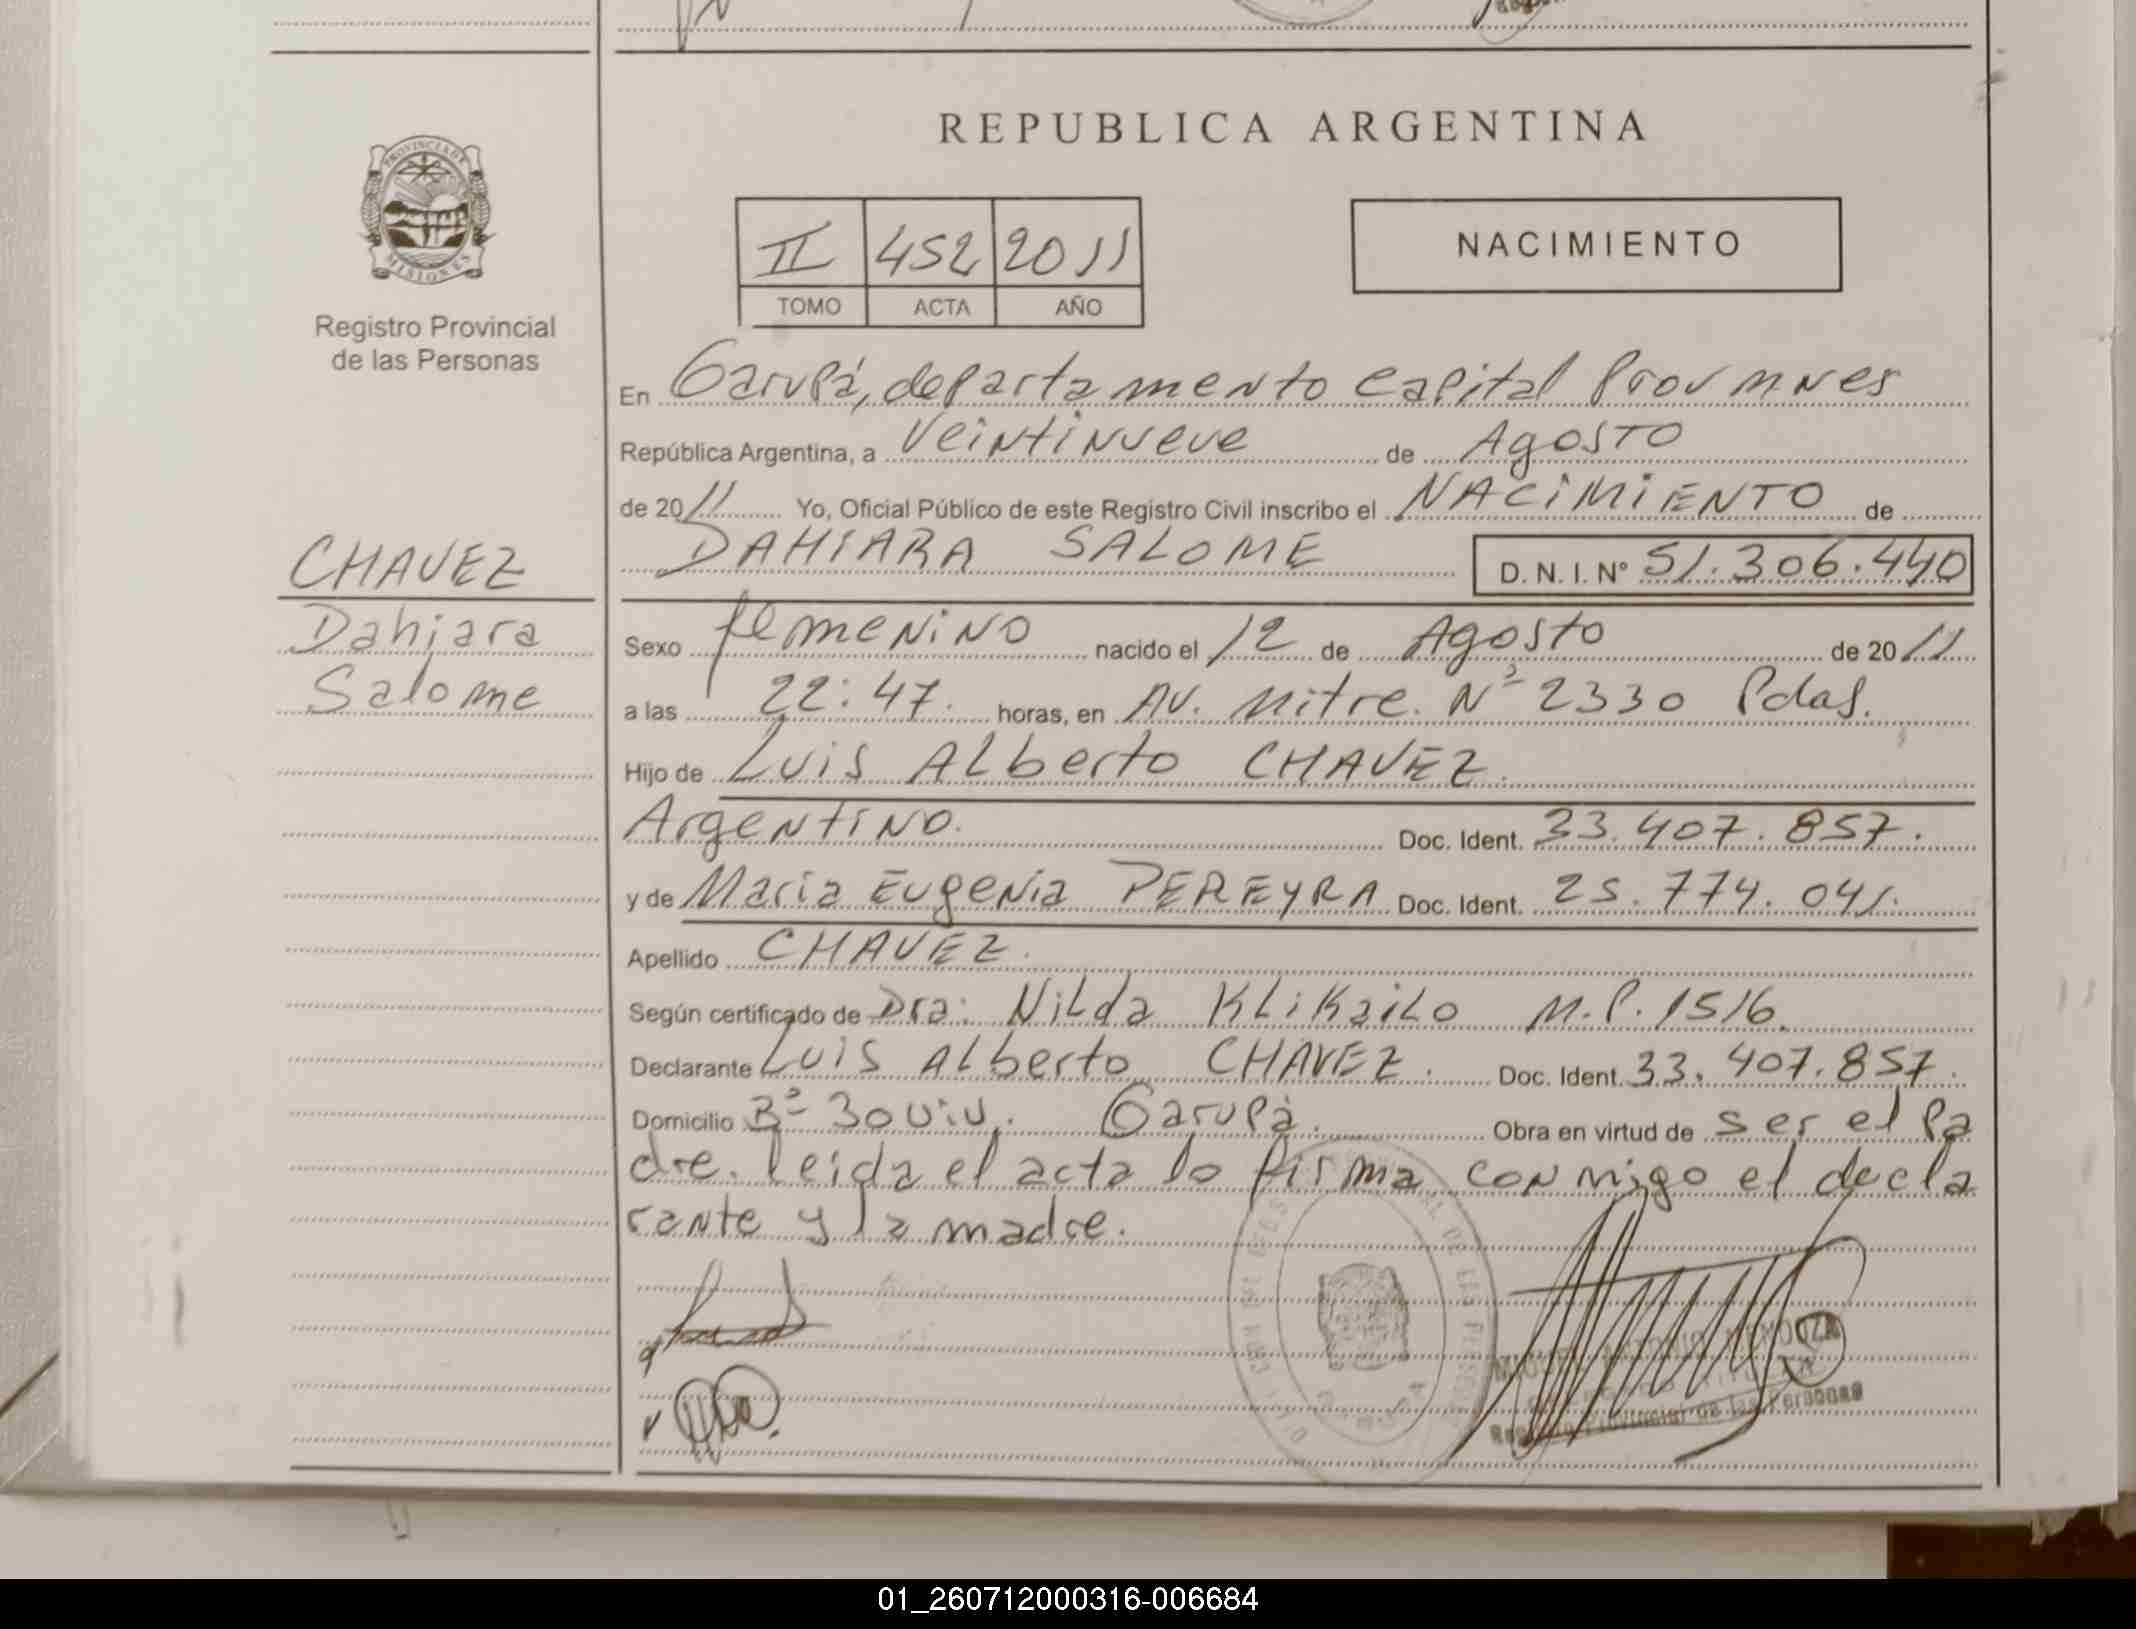 REPUBLICA ARGENTINA
PROVINCIA DE
MISIONES
Registro Provincial
de las Personas
II 452 2011
TOMO ACTA AÑO
NACIMIENTO
En Garupá, departamento Capital Prov mnes
República Argentina, a Veintinueve de Agosto
de 2011 Yo, Oficial Público de este Registro Civil inscribo el NACIMIENTO de
DAHIARA SALOME D. N. I. Nº 51.306.440
CHAVEZ
Dahiara
Salome
Sexo femenino nacido el 12 de Agosto de 2011
a las 22:47. horas, en AV. Mitre. Nº 2330 Pdas.
Hijo de Luis Alberto CHAVEZ.
Argentino. Doc. Ident. 33.407.857.
y de Maria Eugenia PEREYRA Doc. Ident. 25.774.041.
Apellido CHAVEZ.
Según certificado de Dra: Nilda Klikailo M.P. 1516.
Declarante Luis Alberto CHAVEZ. Doc. Ident. 33.407.857.
Domicilio Bº 30 viv. Garupá. Obra en virtud de ser el Pa
dre. leida el acta lo firma conmigo el decla
rante y la madre.
ANTONIO MENDOZA
Registro Provincial de las Personas
01_260712000316-006684